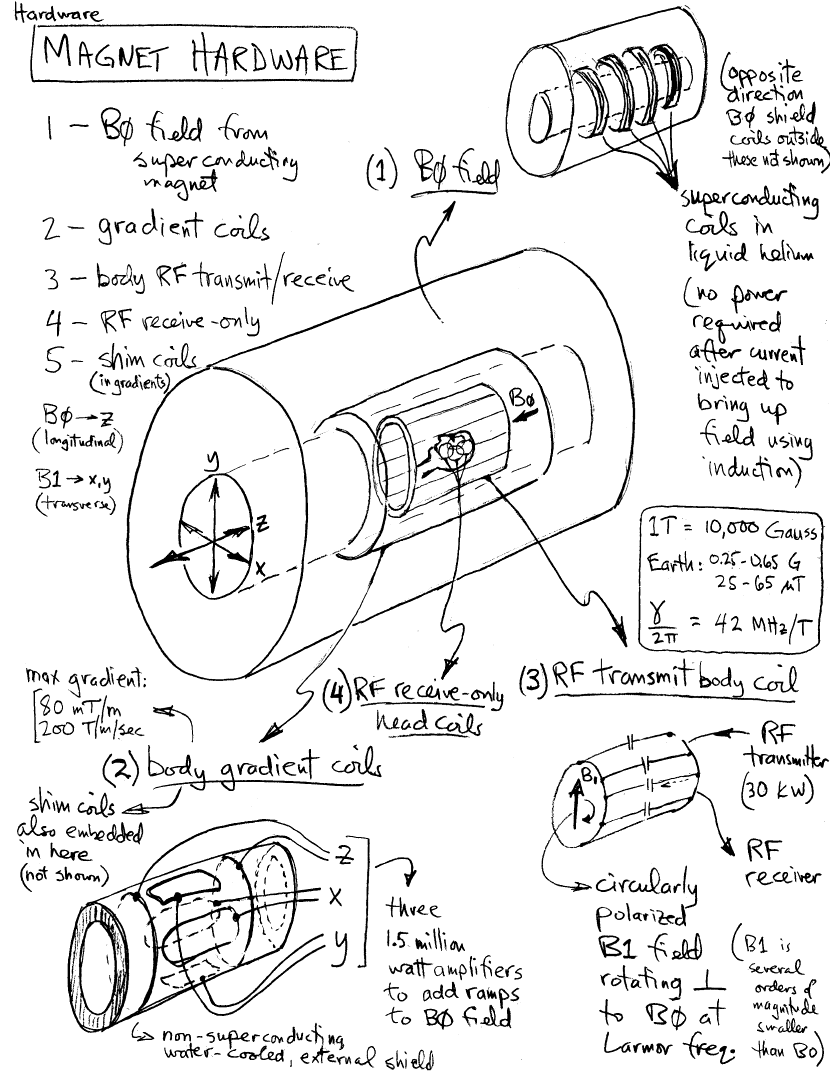 Hardware
MAGNET HARDWARE
1 – BØ field from
superconducting
magnet
2 – gradient coils
3 – body RF transmit/receive
4 – RF receive-only
5 – shim coils
(in gradients)
BØ → z
(longitudinal)
B1 → x,y
(transverse)
(1) BØ field
(opposite
direction
BØ shield
coils outside
these not shown)
superconducting
coils in
liquid helium
(no power
required
after current
injected to
bring up
field using
induction)
BØ
y
z
x
1T = 10,000 Gauss
Earth: 0.25-0.65 G
25-65 µT
γ/2π = 42 MHz/T
max gradient:
80 mT/m
200 T/m/sec
(4) RF receive-only
head coils
(3) RF transmit body coil
(2) body gradient coils
shim coils
also embedded
in here
(not shown)
z
x
y
three
1.5 million
watt amplifiers
to add ramps
to BØ field
non-superconducting,
water-cooled, external shield
B1
RF
transmitter
(30 KW)
RF
receiver
circularly
polarized
B1 field
rotating ⊥
to BØ at
Larmor freq.
(B1 is
several
orders of
magnitude
smaller
than B0)